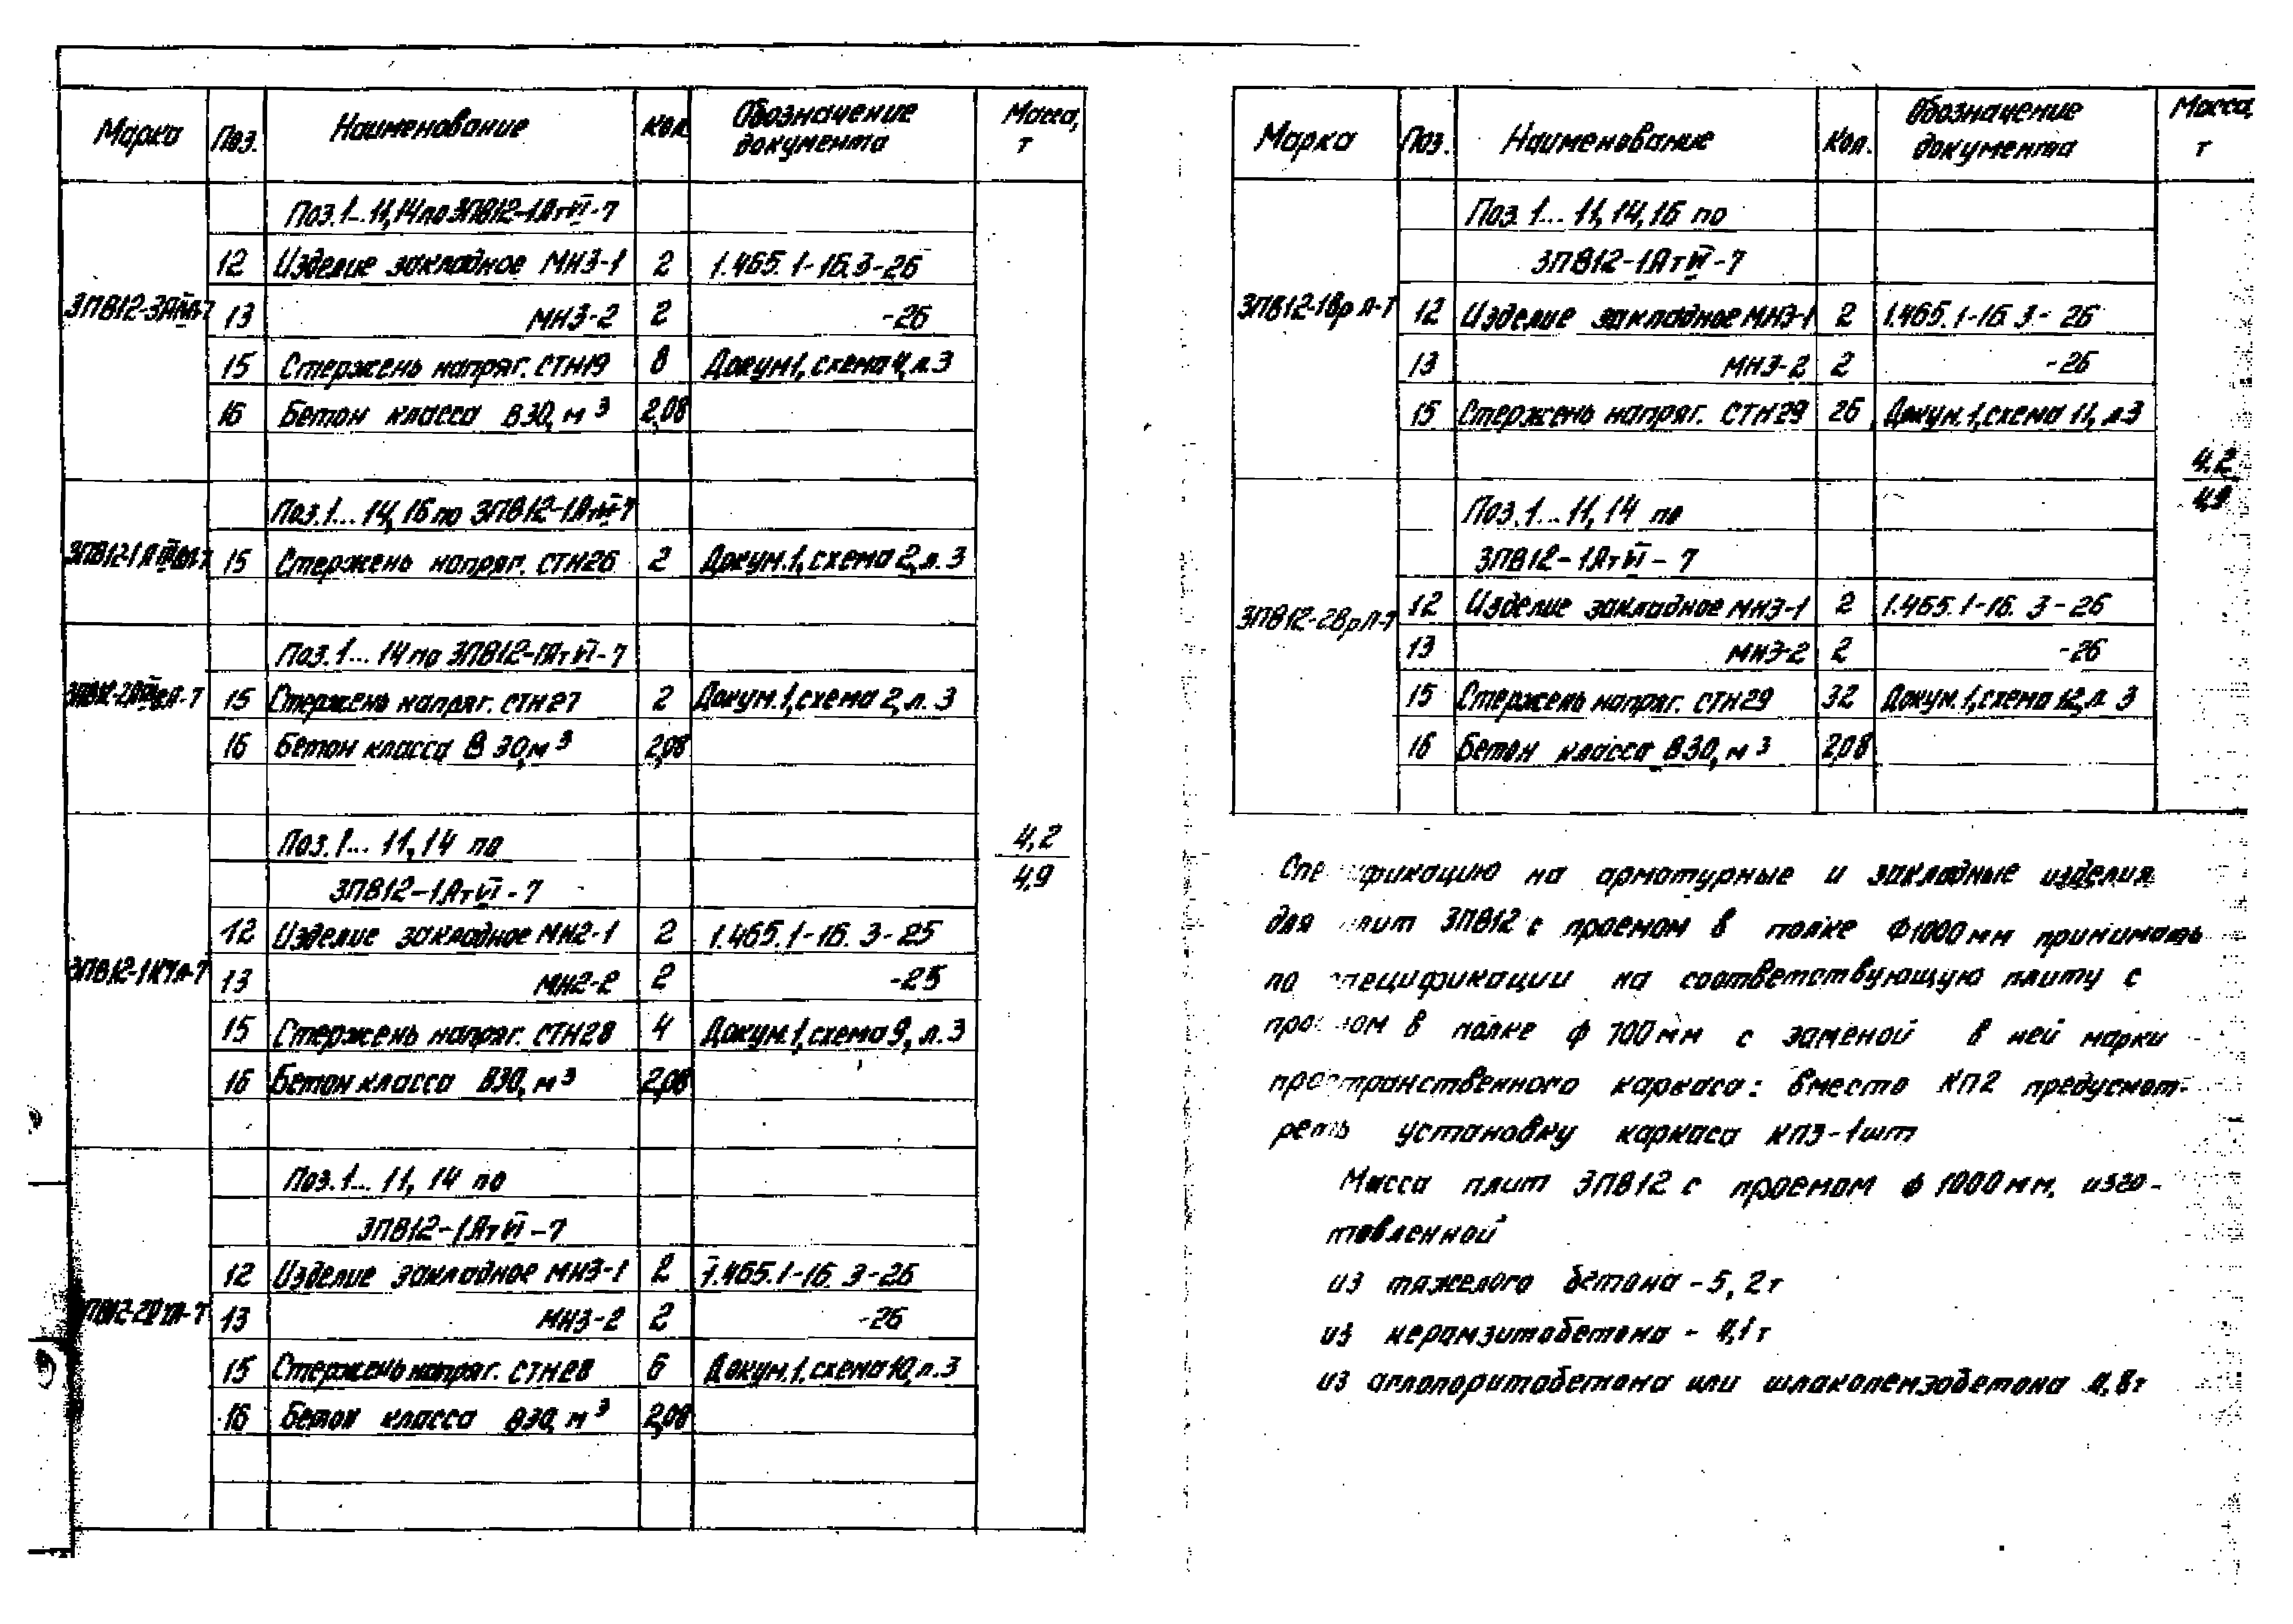 Марка Поз. Наименование Кол. Обозначение документа Масса, т
Поз.1...11,14 по 3ПВ12-1АтVI-7
12 Изделие закладное МН3-1 2 1.465.1-16.3-26
13 МН3-2 2 -26
15 Стержень напряг. СТН19 8 Докум1, схема 4, л.3
16 Бетон класса В30, м³ 2,08
Поз.1...14,16 по 3ПВ12-1АтVI-7
15 Стержень напряг. СТН26 2 Докум.1, схема 2, л.3
Поз.1...14 по 3ПВ12-1АтVI-7
15 Стержень напряг. СТН27 2 Докум.1, схема 2, л.3
16 Бетон класса В30, м³ 2,08
Поз.1... 11,14 по
3ПВ12-1АтVI-7
12 Изделие закладное МН2-1 2 1.465.1-16.3-25
3ПВ12-1К7Л-7 13 МН2-2 2 -25
15 Стержень напряг. СТН28 4 Докум.1, схема 9, л.3
16 Бетон класса В30, м³ 2,08
4,2
4,9
Поз.1... 11, 14 по
3ПВ12-1АтVI-7
12 Изделие закладное МН3-1 2 1.465.1-16.3-26
13 МН3-2 2 -26
15 Стержень напряг. СТН28 6 Докум.1. схема 10, л.3
16 Бетон класса В30, м³ 2,08
Марка Поз. Наименование Кол. Обозначение документа Масса, т
Поз.1... 11,14,16 по
3ПВ12-1АтVI-7
3ПВ12-1ВрЛ-7 12 Изделие закладное МН3-1 2 1.465.1-16.3-26
13 МН3-2 2 -26
15 Стержень напряг. СТН29 26 Докум.1, схема 11, л.3
4,2
4,9
Поз.1...11,14 по
3ПВ12-1АтVI-7
3ПВ12-2ВрЛ-7 12 Изделие закладное МН3-1 2 1.465.1-16.3-26
13 МН3-2 2 -26
15 Стержень напряг. СТН29 32 Докум.1, схема 12, л.3
16 Бетон класса В30, м³ 2,08
Спецификацию на арматурные и закладные изделия
для плит 3ПВ12 с проемом в полке Ф1000мм принимать
по спецификации на соответствующую плиту с
проемом в полке ф 700мм с заменой в ней марки
пространственного каркаса: вместо КП2 предусмот-
реть установку каркаса КП3-1шт
Масса плит 3ПВ12 с проемом ф 1000мм, изго-
товленной
из тяжелого бетона - 5,2т
из керамзитобетона - 4,1т
из аглопоритобетона или шлакопемзобетона 4,8т